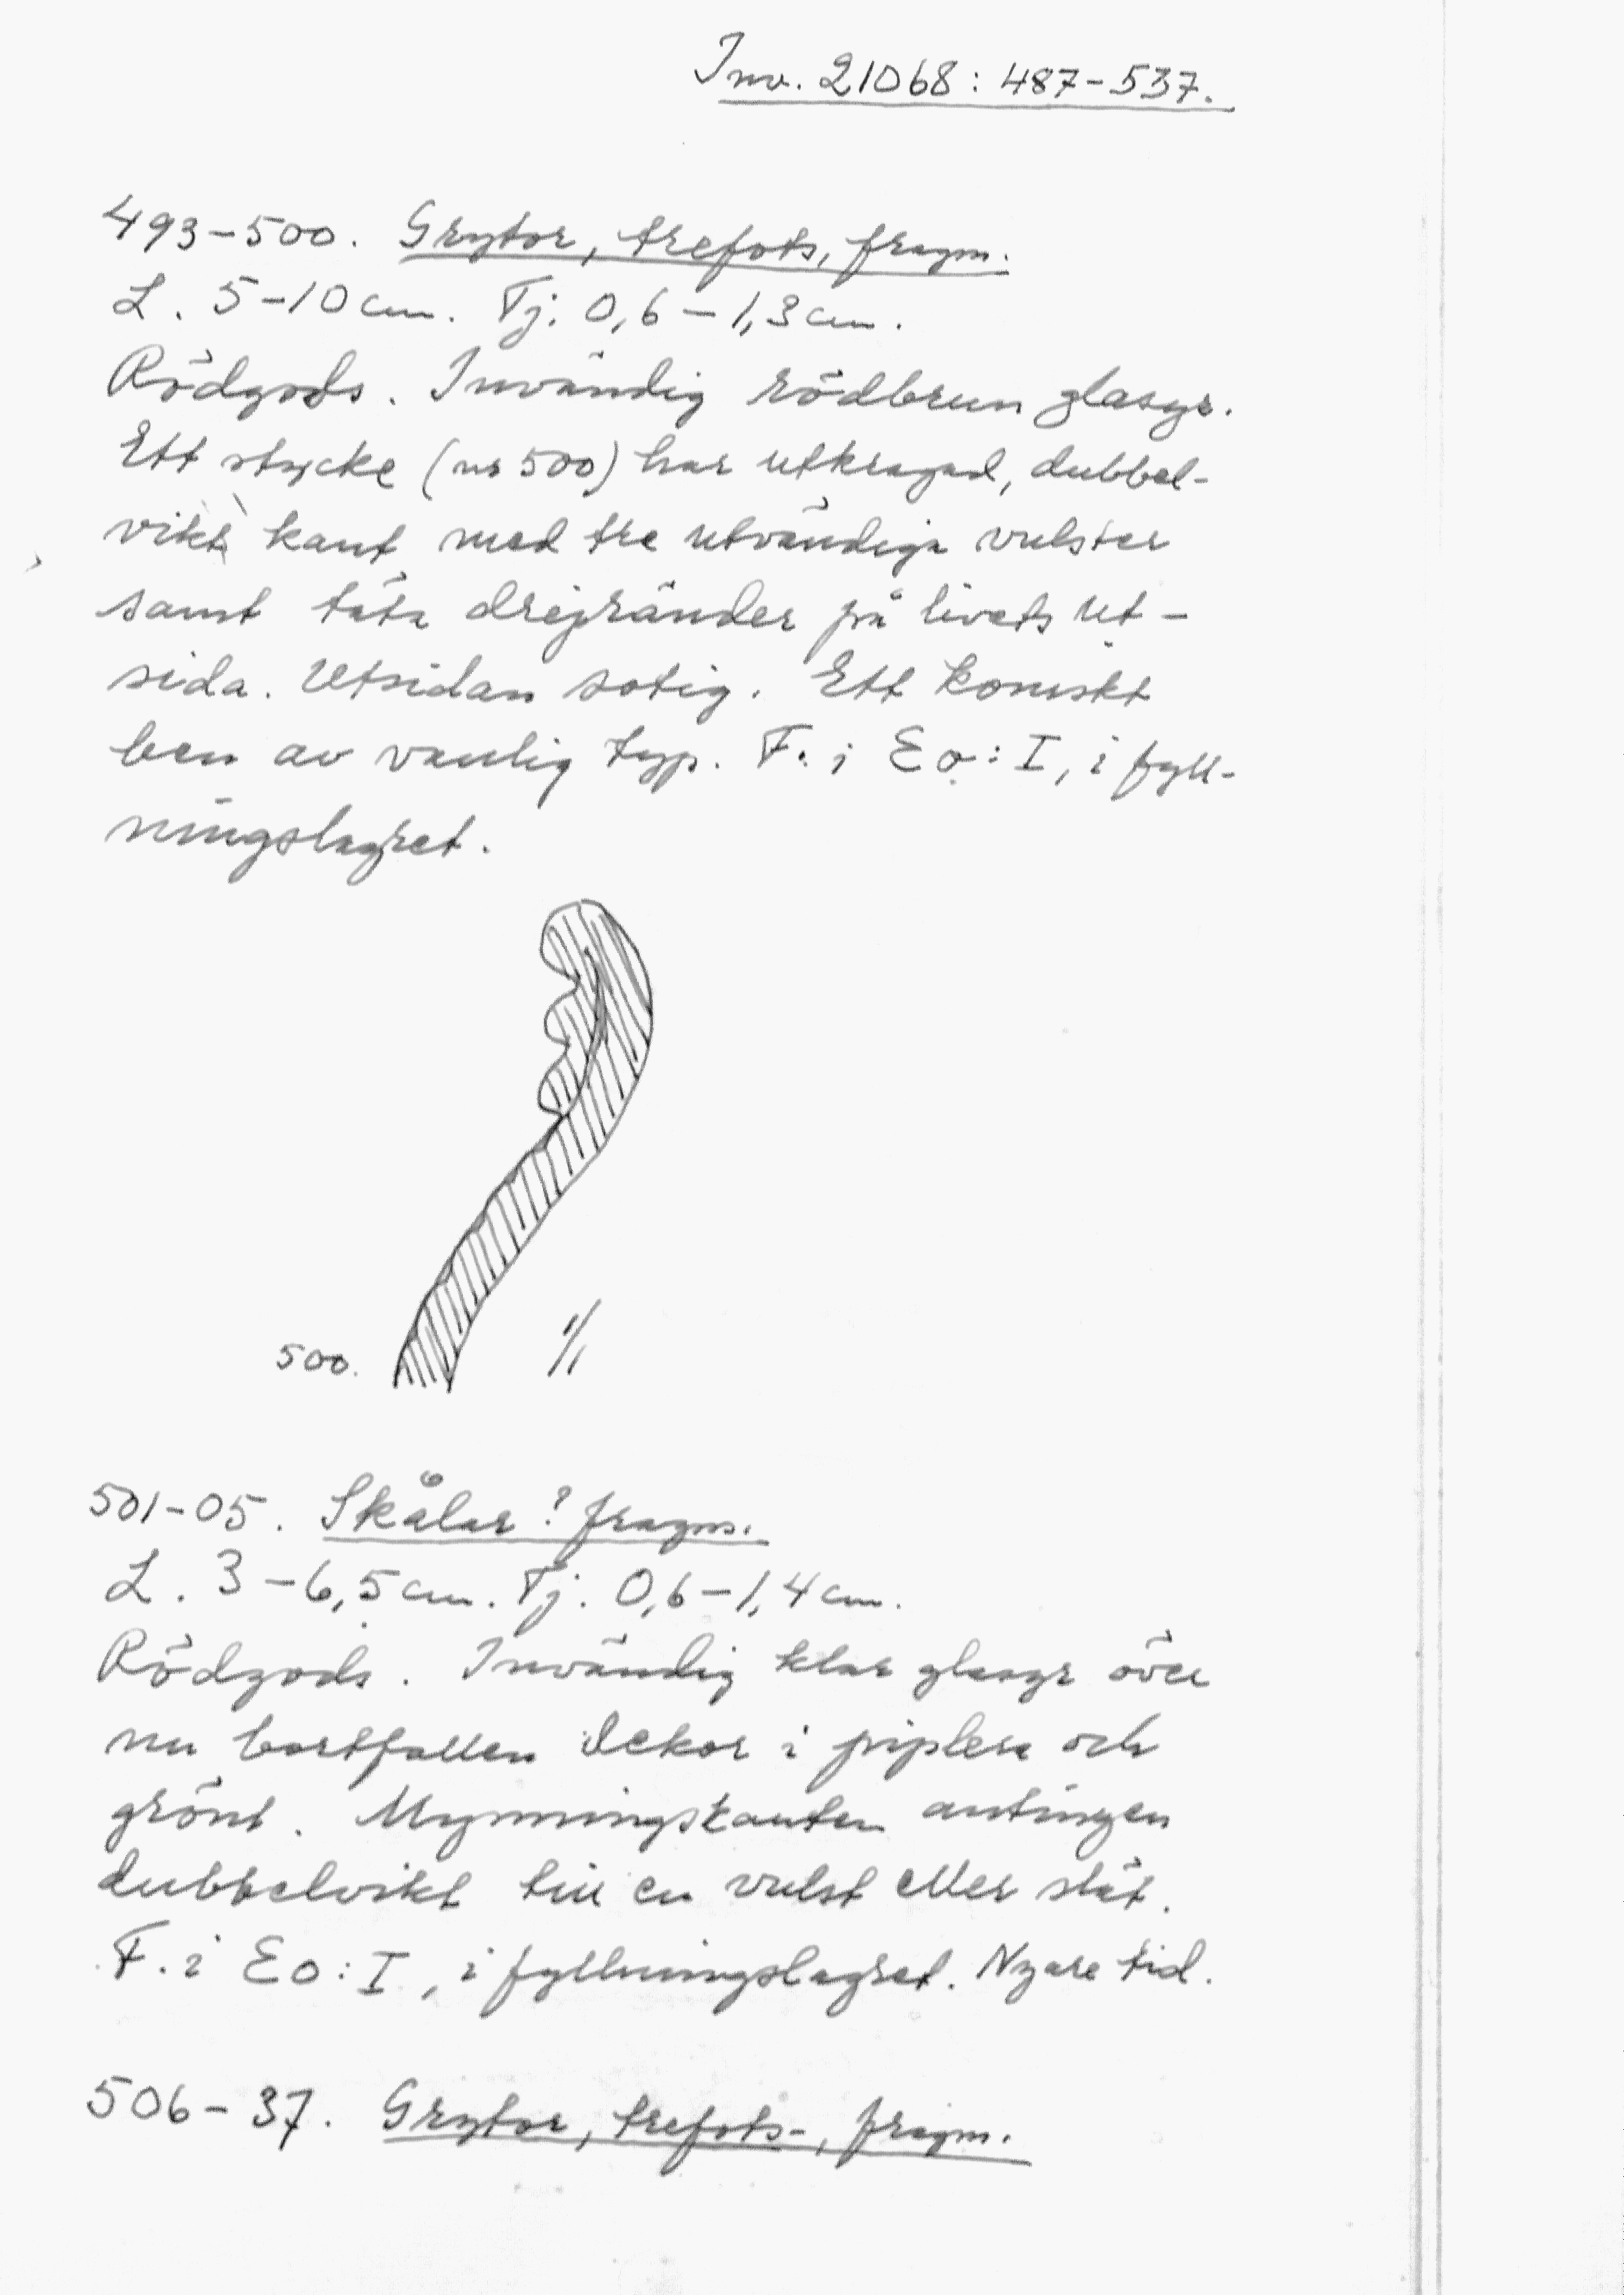 Inv. 21068: 487-537.
493-500. Grytor, trefots, fragm.
L. 5-10 cm. Tj. 0,6-1,3 cm.
Rödgods. Invändig rödbrun glasyr.
Ett stycke (nr 500) har utkragad, dubbel-
vikt kant med tre utvändiga vulster
samt täta drejränder på livets ut-
sida. Utsidan sotig. Ett koniskt
ben av vanlig typ. F. i Eo: I, i fyll-
ningslagret.
500. 1/1
501-05. Skålar? fragm.
L. 3-6,5 cm. Tj. 0,6-1,4 cm.
Rödgods. Invändig klar glasyr över
nu bortfallen dekor i piplera och
grönt. Mynningskanten antingen
dubbelvikt till en vulst eller slät.
F. i Eo: I, i fyllningslagret. Nyare tid.
506-37. Grytor, trefots-, fragm.